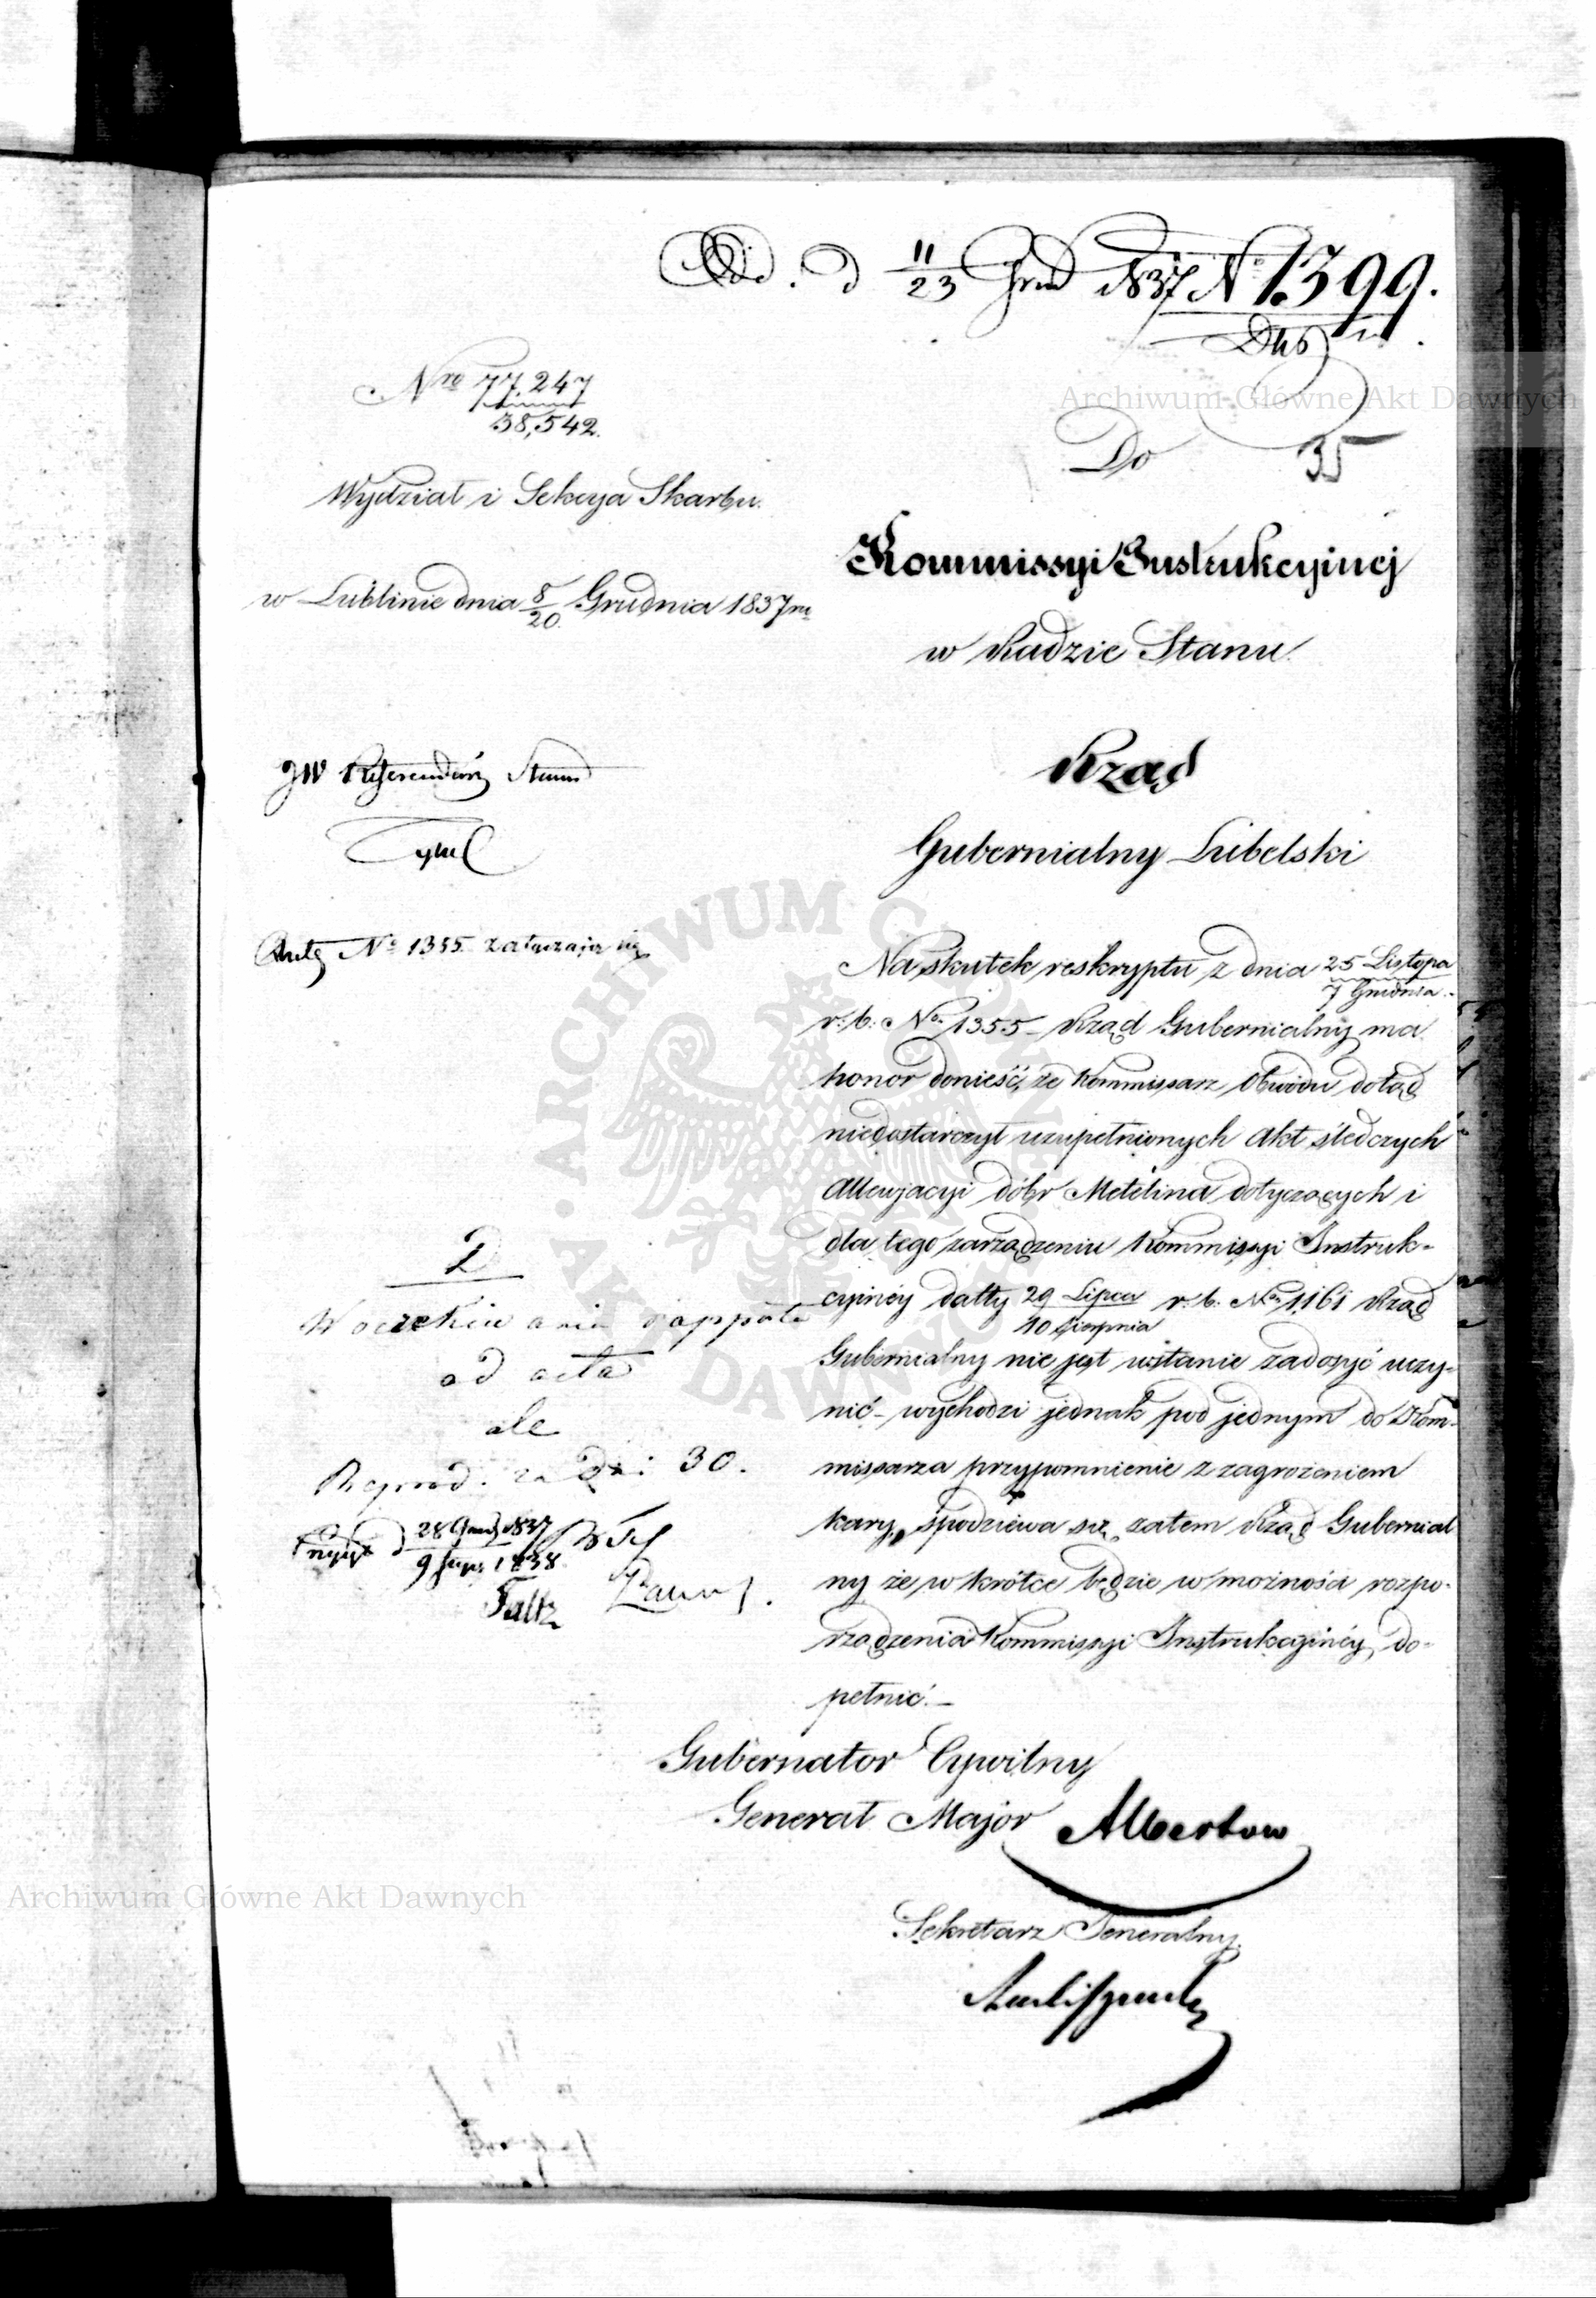 Odd. d 11/23 Grud 1837 No 1399.
35
Nro 77,247
38,542.
Wydział i Sekcya Skarbu.
w Lublinie dnia 8/20 Grudnia 1837 r
Do
Kommissyi Instrukcyjnej
w Radzie Stanu.
JW Referendarz Stanu
Rząd
Gubernialny Lubelski
No 1355 załączając się
Na skutek reskryptu z dnia 25 Listopa/7 Grudnia
r: b: No 1355 Rząd Gubernialny ma
honor donieść, że Kommissarz Obwodu dotąd
niedostarczył uzupełnionych Akt śledczych
Allewjacyi dóbr Metelina dotyczących i
dla tego zarządzeniu Kommissyi Instruk-
cyjnéy datty 29 Lipca/10 Sierpnia r. b. No 1161 Rząd
Gubernialny nie jest wstanie zadosyć uczy-
nić – wychodzi jednak pod jednym do Kom-
missarza przypomnienie z zagrożeniem
kary, spodziewa się zatem Rząd Gubernial
ny że w krótce będzie w możności rozpo-
rządzenia Kommissyi Instrukcyjnéy do-
pełnić. –
D
W oczekiwaniu rapportu
ad acta
ale
Reprod. za dni 30.
28 Grud 1837
9 1838
Gubernator Cywilny
Generał Major Albertow
Sekretarz Generalny
Archiwum Główne Akt Dawnych
Archiwum Główne Akt Dawnych
ARCHIWUM GŁÓWNE AKT DAWNYCH